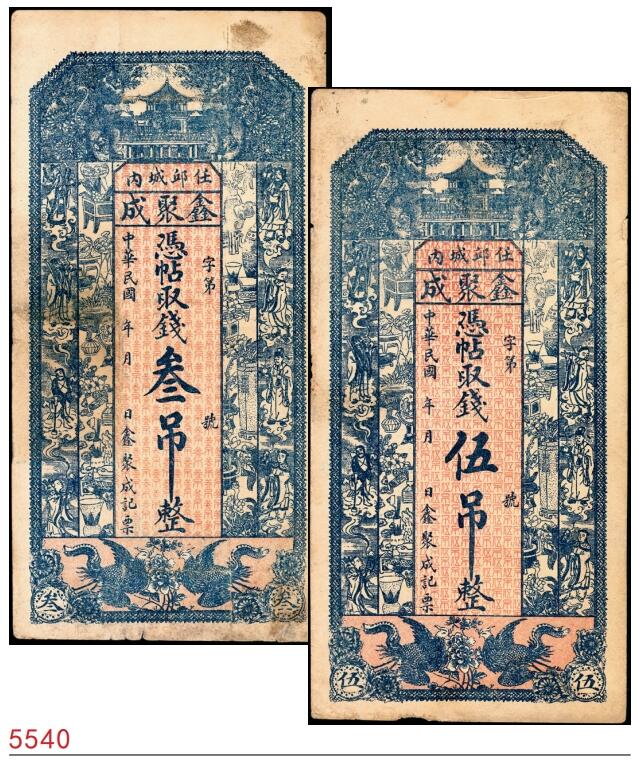 任邱城內
鑫聚成
字第 號
憑帖取錢叁吊整
中華民國 年 月 日鑫聚成記票
叁
叁
任邱城內
鑫聚成
字第 號
憑帖取錢伍吊整
中華民國 年 月 日鑫聚成記票
伍
伍
5540